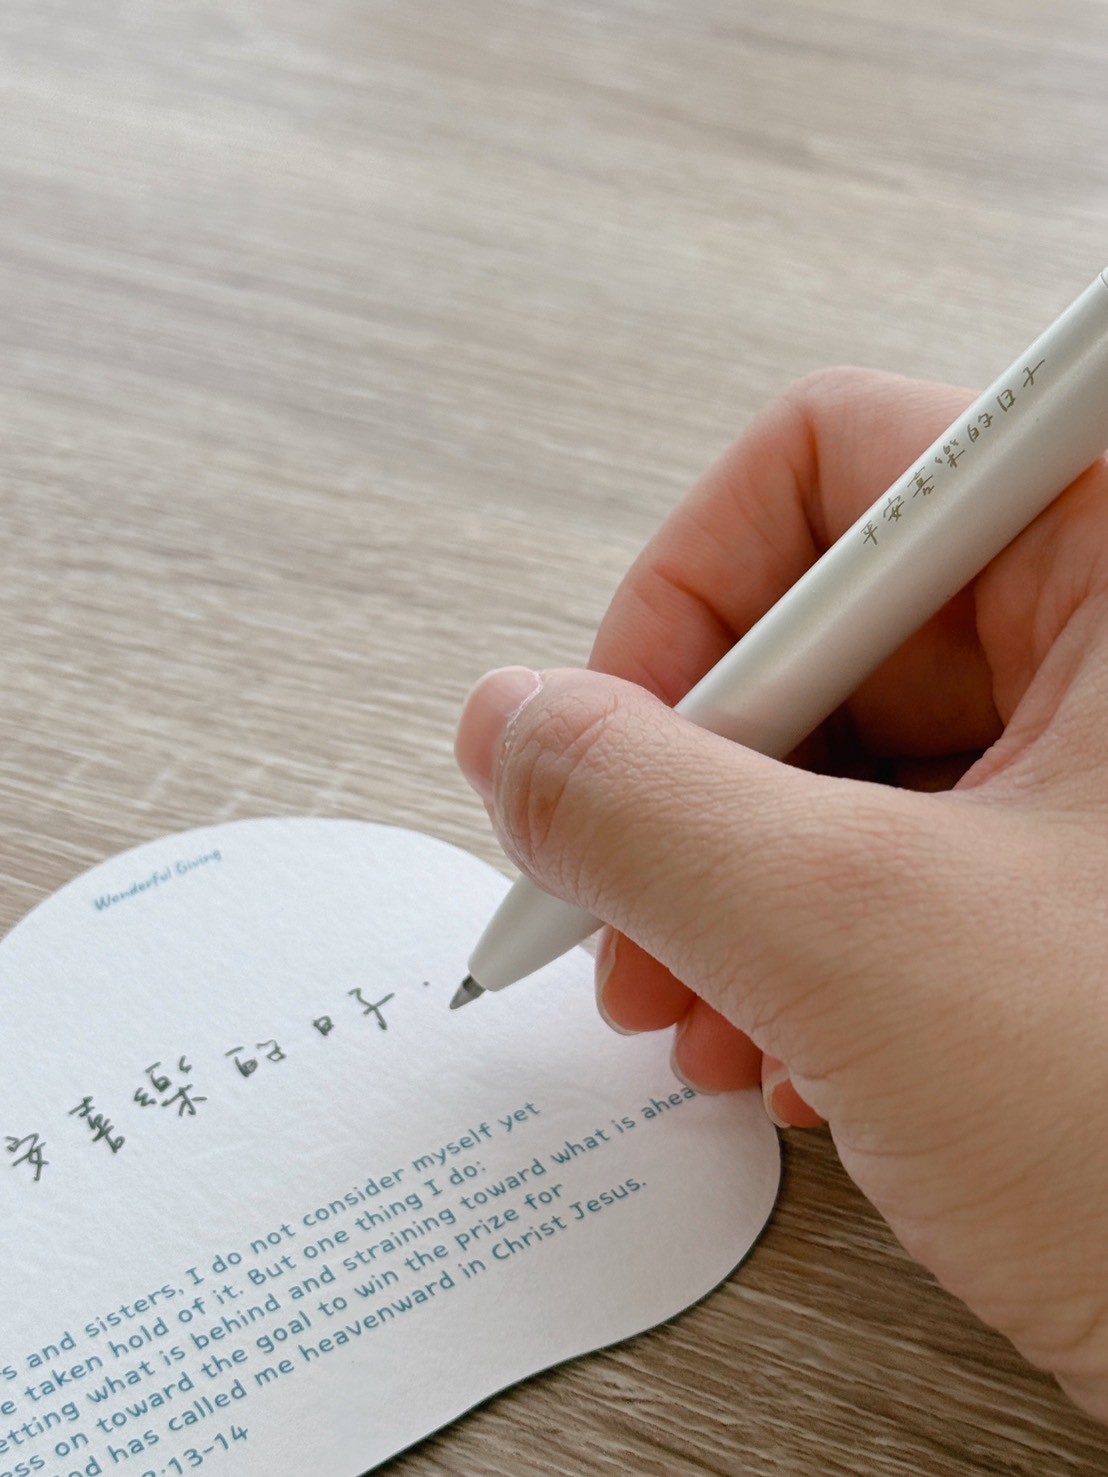 平安喜樂的日子
Wonderful Giving
安喜樂的日子.
s and sisters, I do not consider myself yet
e taken hold of it. But one thing I do:
etting what is behind and straining toward what is ahea
ess on toward the goal to win the prize for
od has called me heavenward in Christ Jesus.
3:13-14